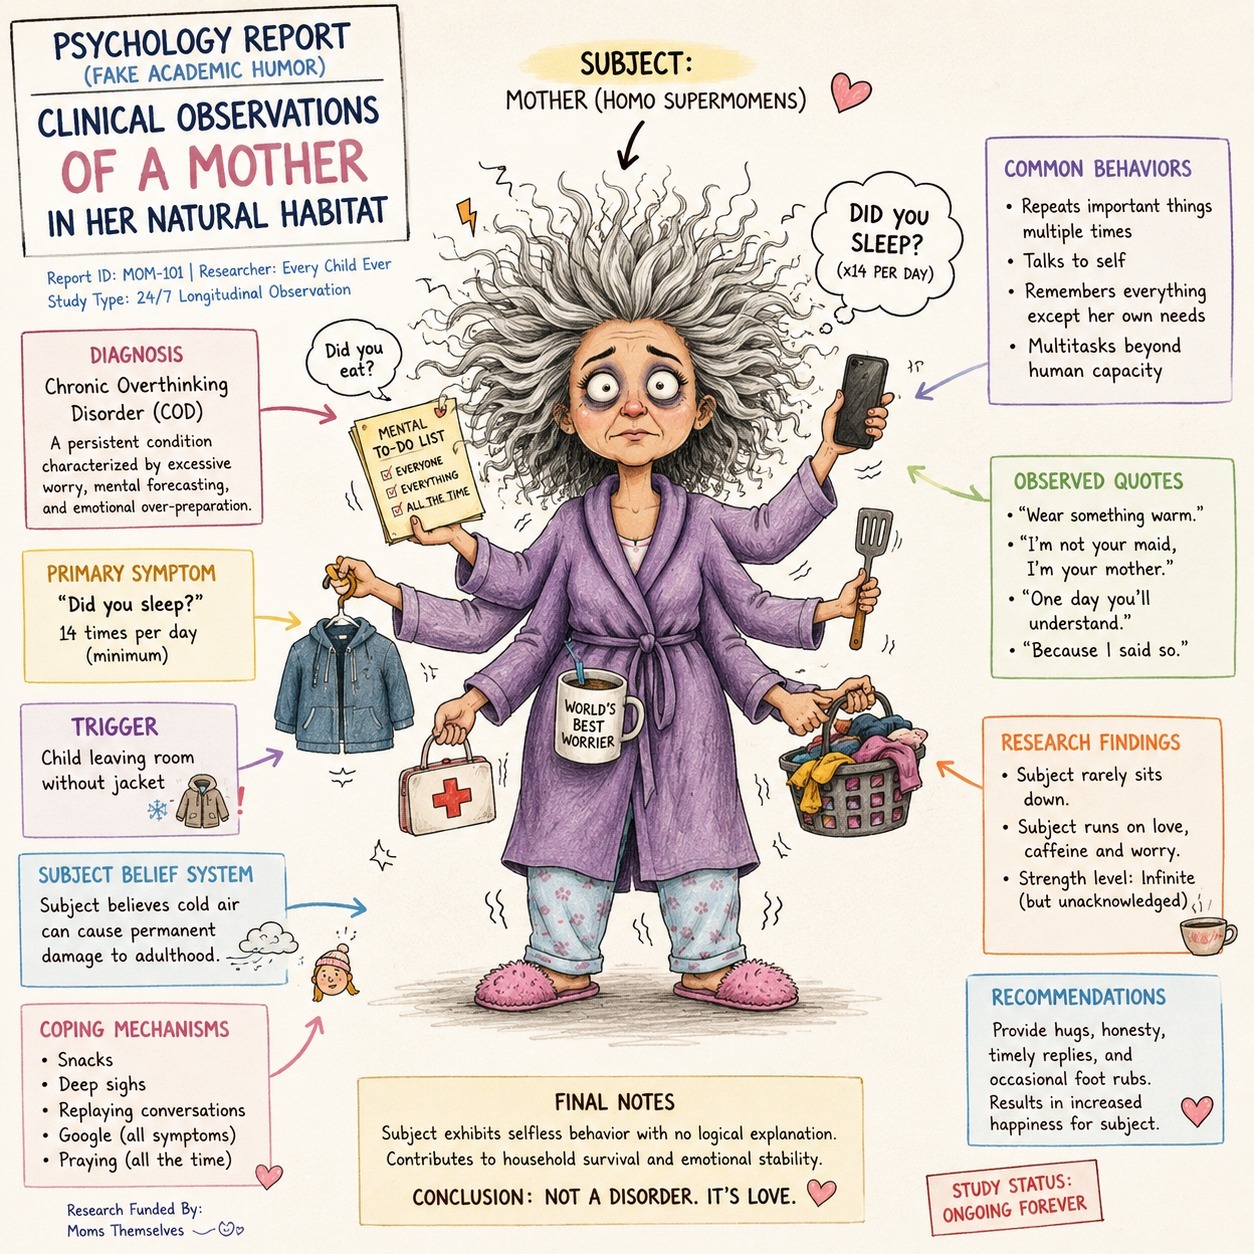 PSYCHOLOGY REPORT
(FAKE ACADEMIC HUMOR)
CLINICAL OBSERVATIONS
OF A MOTHER
IN HER NATURAL HABITAT
Report ID: MOM-101 | Researcher: Every Child Ever
Study Type: 24/7 Longitudinal Observation
SUBJECT:
MOTHER (HOMO SUPERMOMENS)
DID YOU
SLEEP?
(x14 PER DAY)
Did you
eat?
MENTAL
TO-DO LIST
EVERYONE
EVERYTHING
ALL THE TIME
WORLD'S
BEST
WORRIER
DIAGNOSIS
Chronic Overthinking
Disorder (COD)
A persistent condition
characterized by excessive
worry, mental forecasting,
and emotional over-preparation.
PRIMARY SYMPTOM
"Did you sleep?"
14 times per day
(minimum)
TRIGGER
Child leaving room
without jacket
!
SUBJECT BELIEF SYSTEM
Subject believes cold air
can cause permanent
damage to adulthood.
COPING MECHANISMS
• Snacks
• Deep sighs
• Replaying conversations
• Google (all symptoms)
• Praying (all the time)
Research Funded By:
Moms Themselves
COMMON BEHAVIORS
• Repeats important things
multiple times
• Talks to self
• Remembers everything
except her own needs
• Multitasks beyond
human capacity
OBSERVED QUOTES
• "Wear something warm."
• "I'm not your maid,
I'm your mother."
• "One day you'll
understand."
• "Because I said so."
RESEARCH FINDINGS
• Subject rarely sits
down.
• Subject runs on love,
caffeine and worry.
• Strength level: Infinite
(but unacknowledged)
RECOMMENDATIONS
Provide hugs, honesty,
timely replies, and
occasional foot rubs.
Results in increased
happiness for subject.
FINAL NOTES
Subject exhibits selfless behavior with no logical explanation.
Contributes to household survival and emotional stability.
CONCLUSION: NOT A DISORDER. IT'S LOVE.
STUDY STATUS:
ONGOING FOREVER